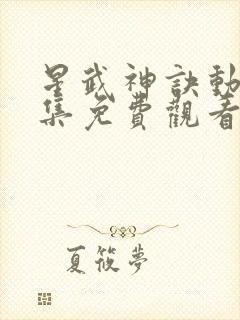 星武神訣動
集免費觀看
夏筱夢